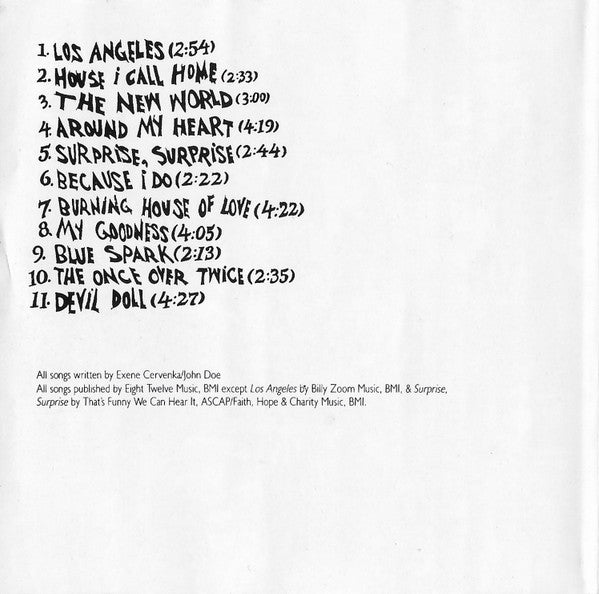 1. LOS ANGELES (2:54)
2. HOUSE i CALL HOME (2:33)
3. THE NEW WORLD (3:00)
4. AROUND MY HEART (4:19)
5. SURPRISE, SURPRISE (2:44)
6. BECAUSE i DO (2:22)
7. BURNING HOUSE OF LOVE (4:22)
8. MY GOODNESS (4:05)
9. BLUE SPARK (2:13)
10. THE ONCE OVER TWICE (2:35)
11. DEViL DOLL (4:27)
All songs written by Exene Cervenka/John Doe
All songs published by Eight Twelve Music, BMI except Los Angeles by Billy Zoom Music, BMI, & Surprise,
Surprise by That's Funny We Can Hear It, ASCAP/Faith, Hope & Charity Music, BMI.